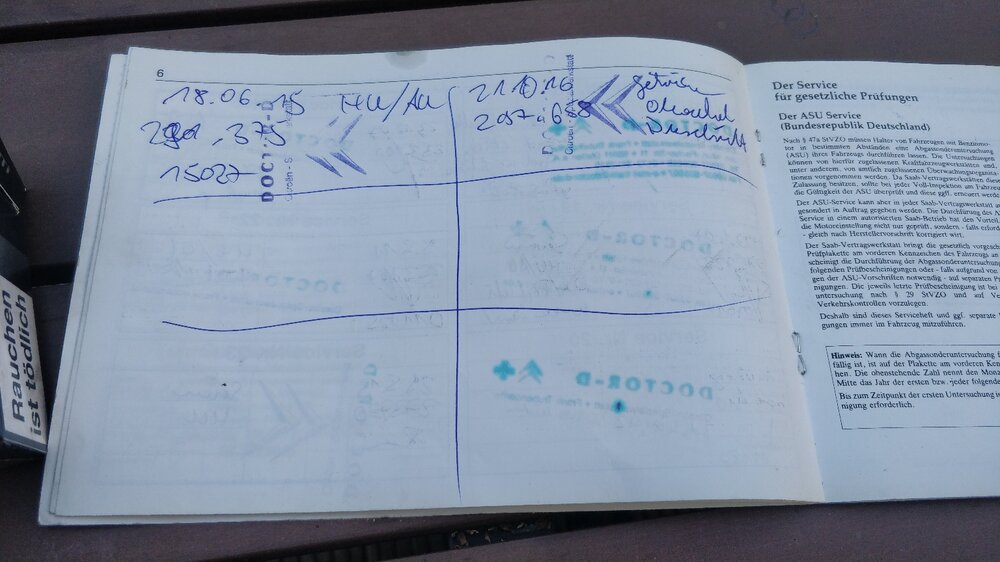 6
18.06.15 HU/AU
15027
21.10.16
DOCTOR-D
DOCTOR-D
DOCTOR-D
Der Service
für gesetzliche Prüfungen
Der ASU Service
(Bundesrepublik Deutschland)
Nach § 47a StVZO müssen Halter von Fahrzeugen mit Benzinmo-
tor in bestimmten Abständen eine Abgassonderuntersuchung
(ASU) ihres Fahrzeugs durchführen lassen. Die Untersuchungen
können von hierfür zugelassenen Kraftfahrzeugwerkstätten und,
unter anderem, von amtlich zugelassenen Überwachungsorganisa-
tionen vorgenommen werden. Da Saab-Vertragswerkstätten diese
Zulassung besitzen, sollte bei jeder Voll-Inspektion am Fahrzeug
die Gültigkeit der ASU überprüft und diese ggf. erneuert werden.
Der ASU-Service kann aber in jeder Saab-Vertragswerkstatt a
gesondert in Auftrag gegeben werden. Die Durchführung des A
Service in einem autorisierten Saab-Betrieb hat den Vorteil,
die Motoreinstellung nicht nur geprüft, sondern - falls erford
- gleich nach Herstellervorschrift korrigiert wird.
Der Saab-Vertragswerkstatt bringt die gesetzlich vorgesch
Prüfplakette am vorderen Kennzeichen des Fahrzeugs an
scheinigt die Durchführung der Abgassonderuntersuchung
folgenden Prüfbescheinigungen oder - falls aufgrund von
gen der ASU-Vorschriften notwendig - auf separaten Pr
nigungen. Die jeweils letzte Prüfbescheinigung ist bei
untersuchung nach § 29 StVZO und auf V
Verkehrskontrollen vorzulegen.
Deshalb sind dieses Serviceheft und ggf. separate
gungen immer im Fahrzeug mitzuführen.
Hinweis: Wann die Abgassonderuntersuchung f
fällig ist, ist auf der Plakette am vorderen Ken
hen. Die obenstehende Zahl nennt den Mona
Mitte das Jahr der ersten bzw. jeder folgende
Bis zum Zeitpunkt der ersten Untersuchung i
nigung erforderlich.
Rauchen
ist tödlich